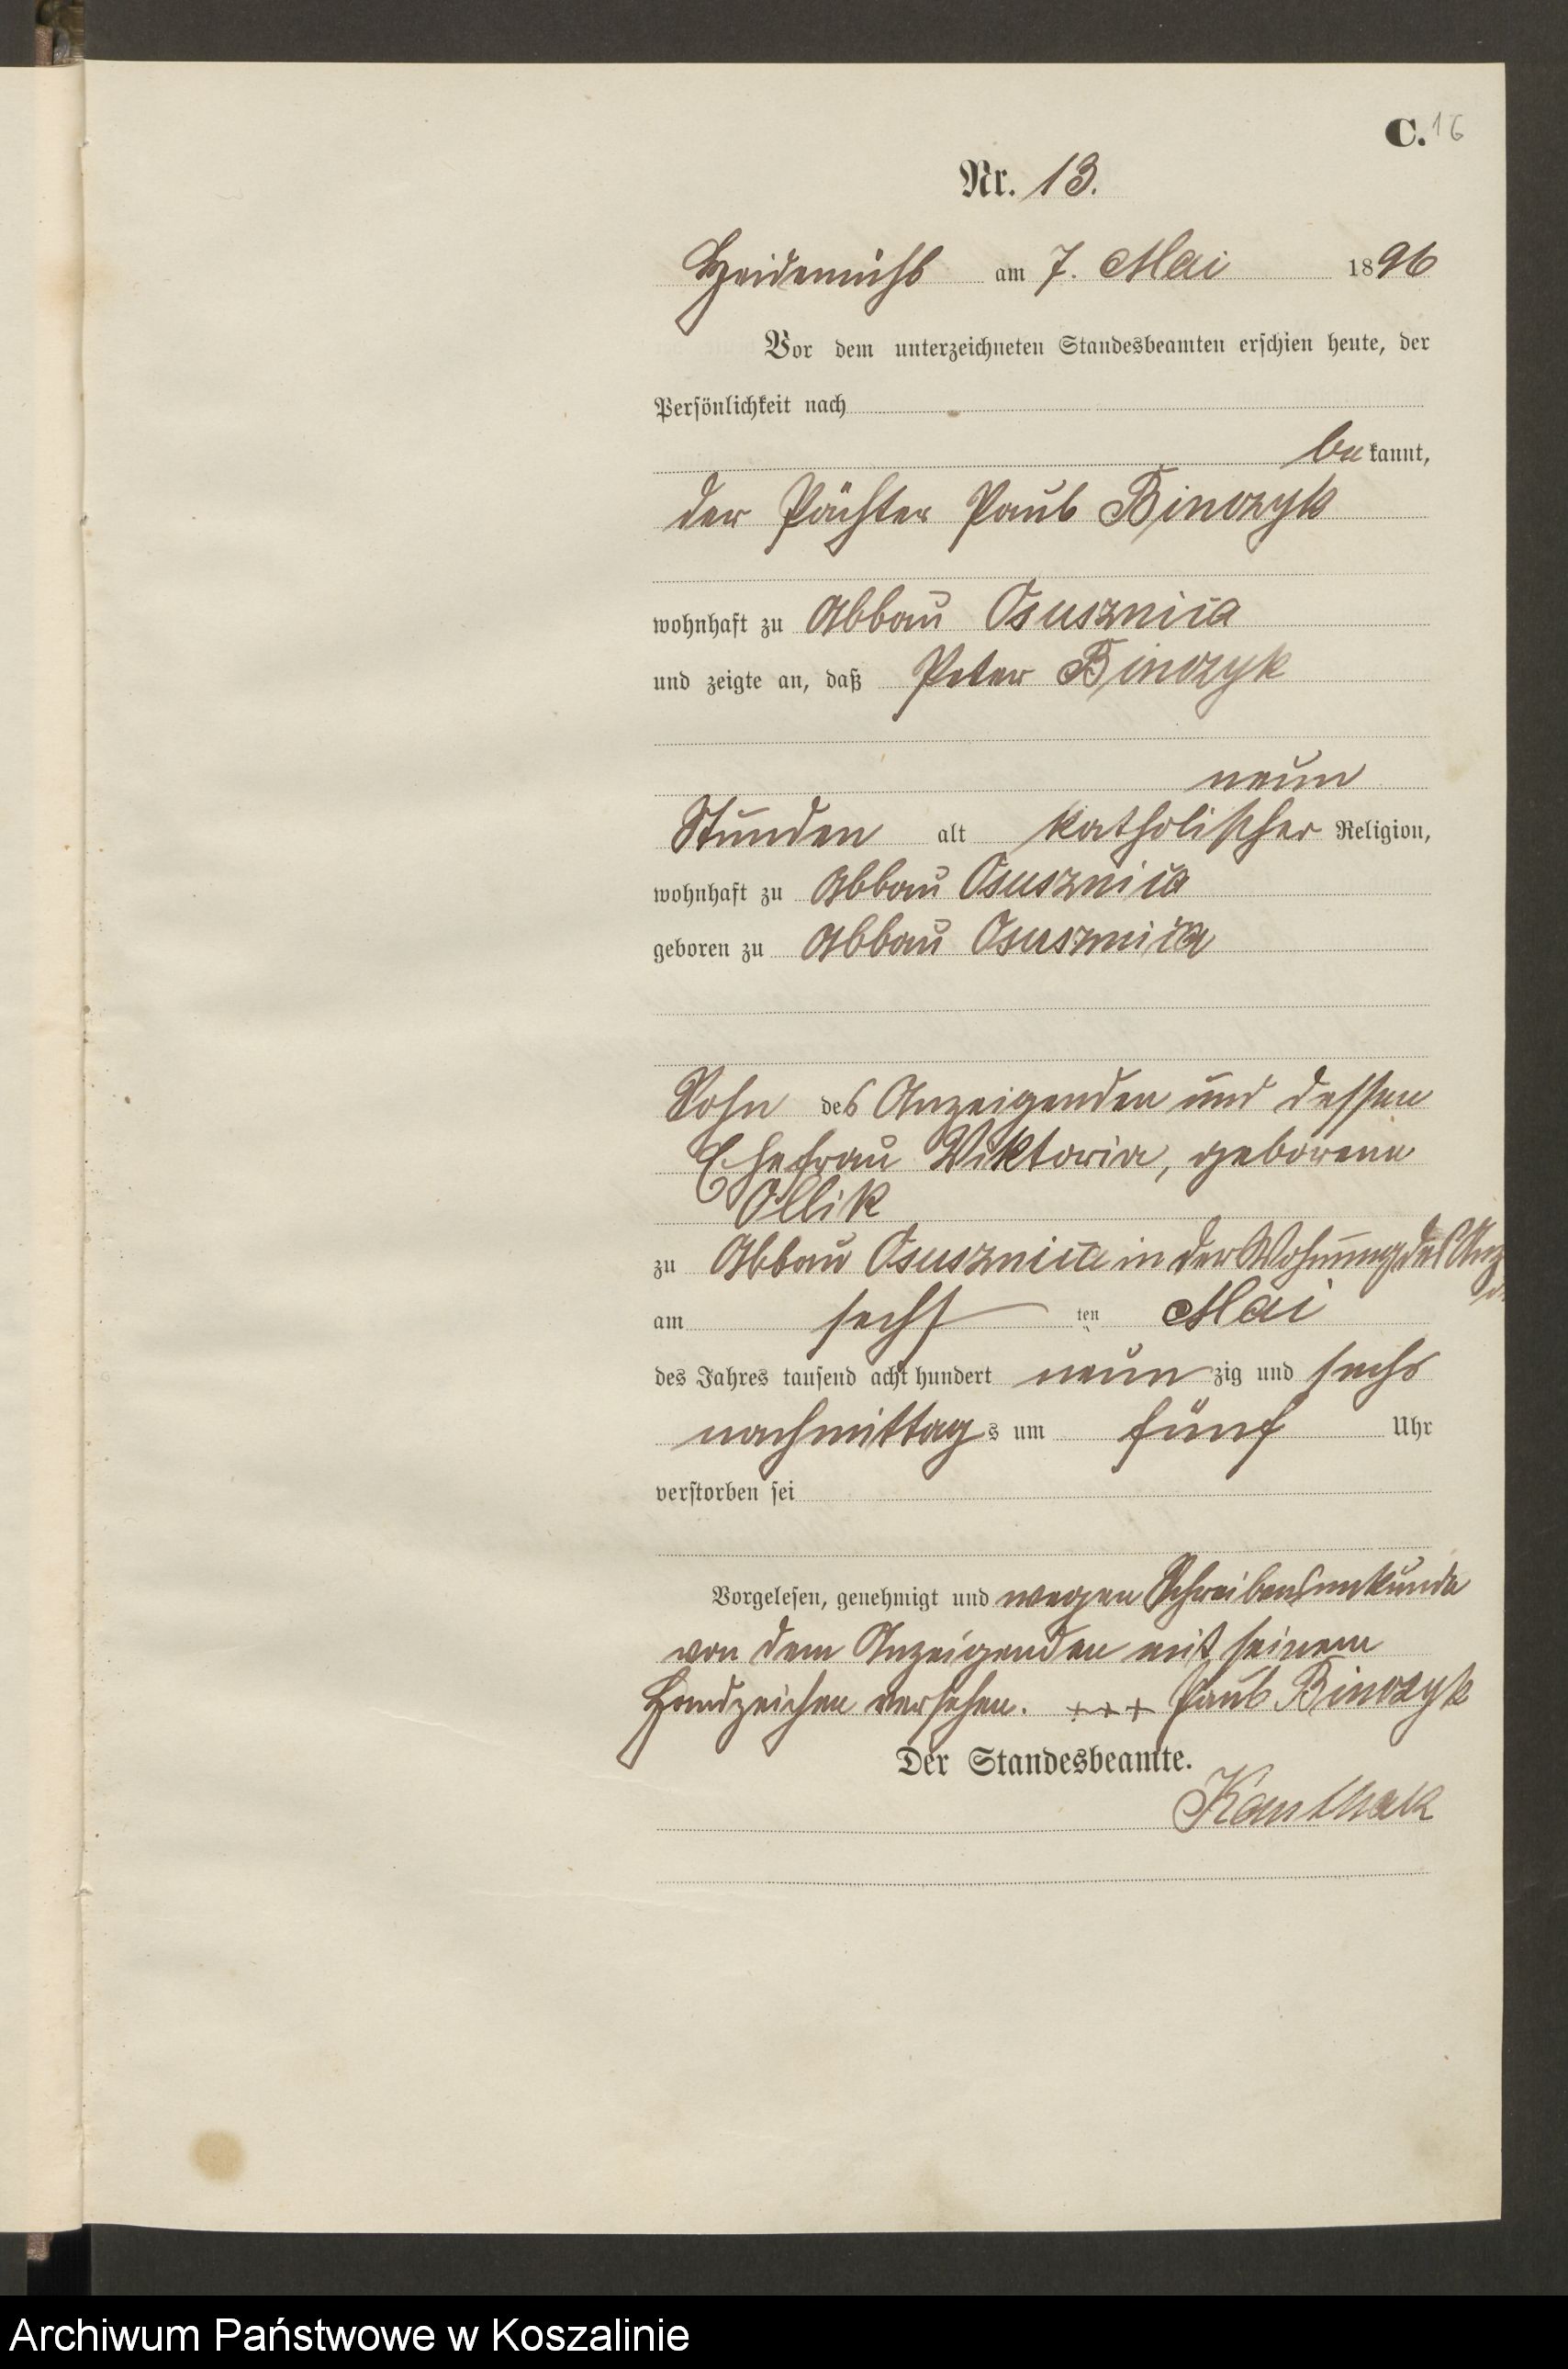 C. 16
Nr. 13.
Heidemühl am 7. Mai 1896
Vor dem unterzeichneten Standesbeamten erschien heute, der
Persönlichkeit nach
bekannt,
der Pächter Paul Binczyk
wohnhaft zu Abbau Osusznica
und zeigte an, daß Peter Binczyk
neun
Stunden alt katholischer Religion,
wohnhaft zu Abbau Osusznica
geboren zu Abbau Osusznica
Sohn des Anzeigenden und dessen
Ehefrau Viktoria, geborene
Ollik
zu Abbau Osusznica in der Wohnung des Anz
am sechsten Mai
des Jahres tausend acht hundert neunzig und sechs
nachmittags um fünf Uhr
verstorben sei
Vorgelesen, genehmigt und wegen Schreibensunkunde
von dem Anzeigenden mit seinem
Handzeichen versehen. +++ Paul Binczyk
Der Standesbeamte.
Kanthak
Archiwum Państwowe w Koszalinie